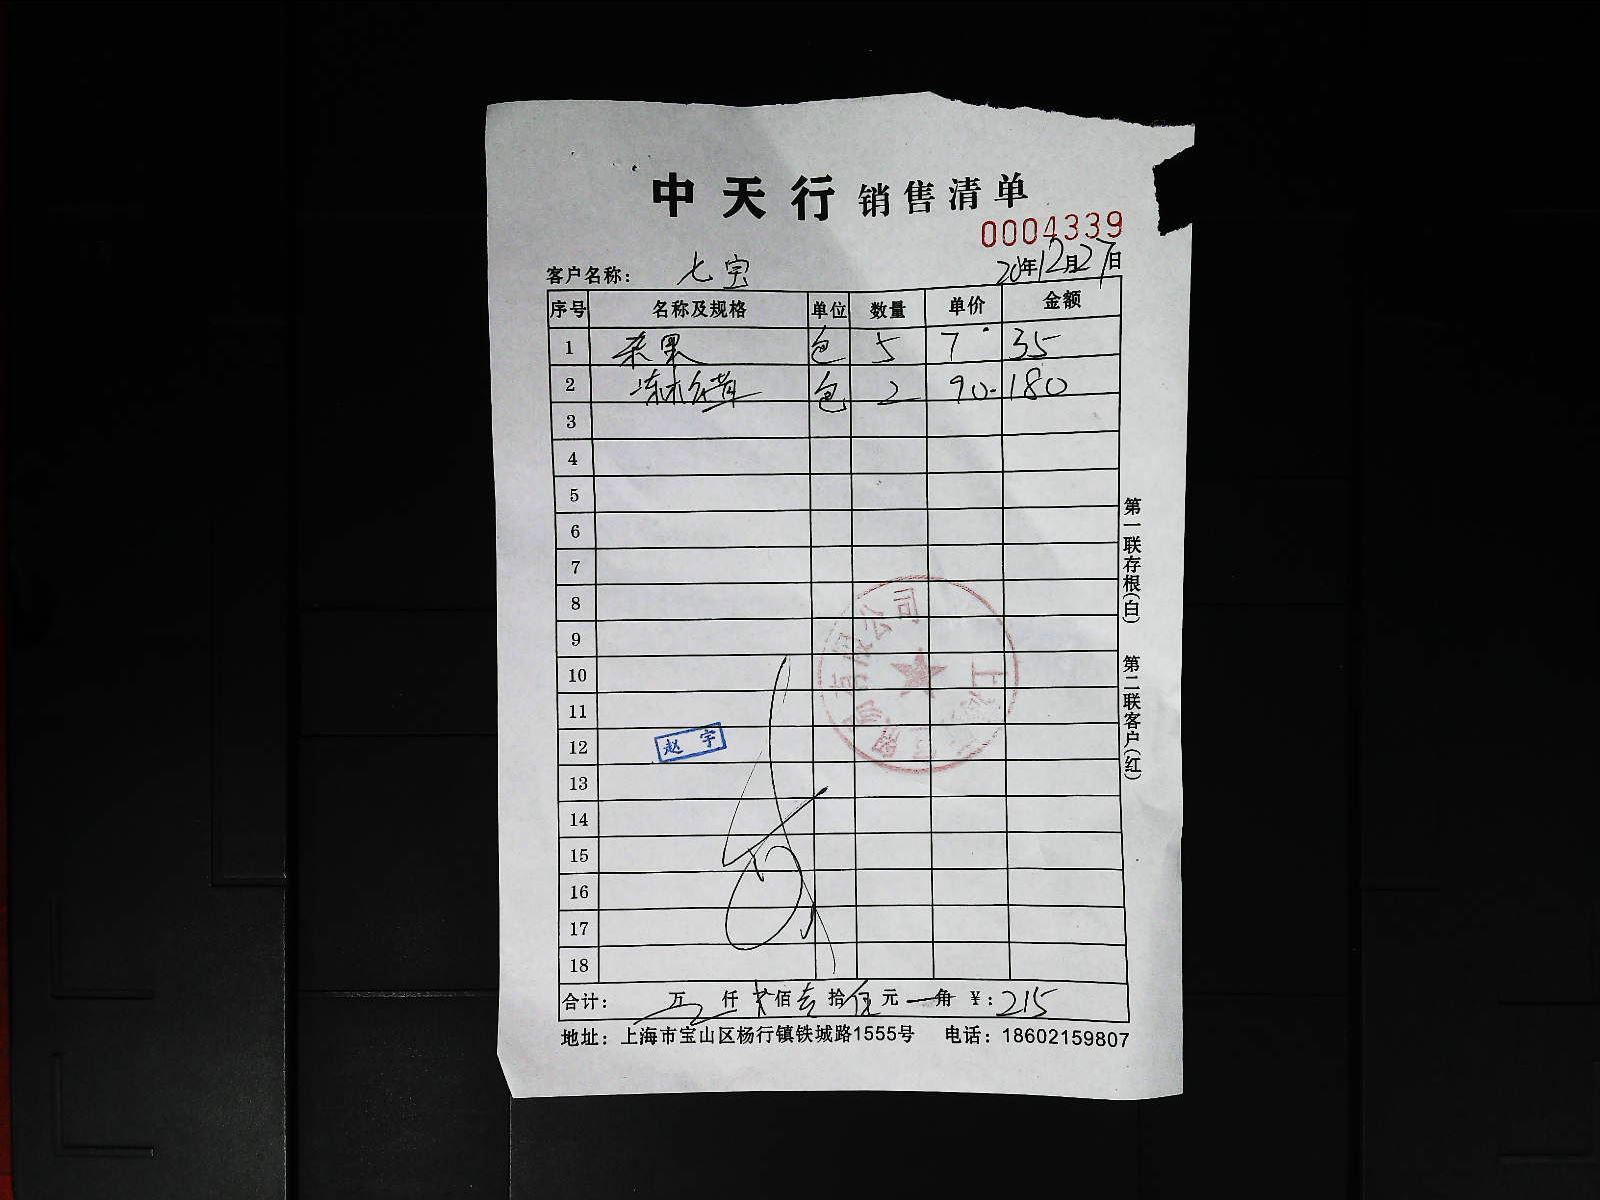 中天行 销售清单
0004339
客户名称： 七宝 20年12月27日
序号 名称及规格 单位 数量 单价 金额
1 杂果 包 5 7 35
2 包 2 90- 180
3
4
5
6
7
8
9
10
11
12 赵宇
13
14
15
16
17
18
合计： 万 仟 贰佰壹拾伍元 角 ¥：215
地址：上海市宝山区杨行镇铁城路1555号 电话：18602159807
第一联存根(白) 第二联客户(红)